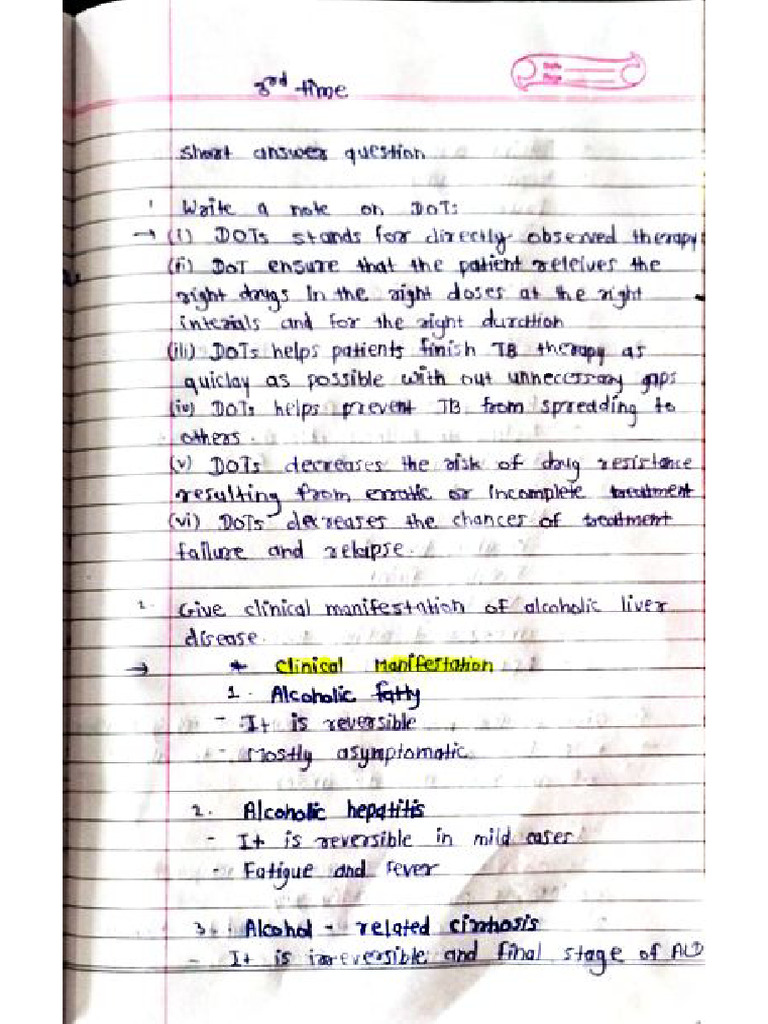 3rd time
Short answer question
1 Write a note on DOTs
→ (i) DOTs stands for directly observed therapy
(ii) DOT ensure that the patient releives the
right drugs in the right doses at the right
interials and for the right durction
(iii) DOTs helps patients finish TB therapy as
quiclay as possible with out unnecessary gaps
(iv) DOTs helps prevent TB from spredding to
others.
(v) DOTs decreases the risk of drug resistance
resulting from erratic or incomplete treatment
(vi) DOTs decreases the chances of treatment
failure and relapse.
2. Give clinical manifestation of alcoholic liver
disease.
→ * Clinical Manifestation
1. Alcoholic fatty
- It is reversible
- Mostly asymptomatic
2. Alcoholic hepatitis
- It is reversible in mild cases
- Fatigue and fever
3. Alcohol - related cirrhosis
- It is irreversible and final stage of ALD